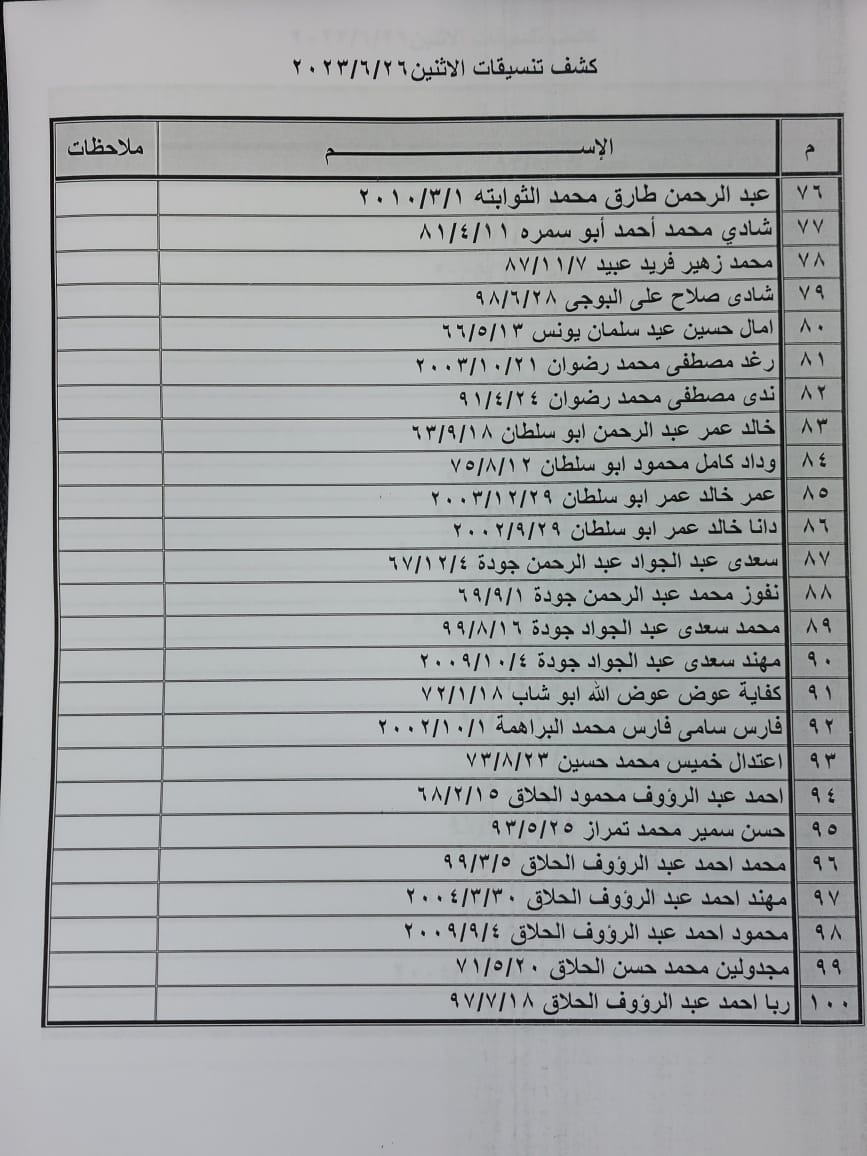 كشف تنسيقات الاثنين ٢٠٢٣/٦/٢٦
م الإســــم ملاحظات
٧٦ عبد الرحمن طارق محمد الثوابته ٢٠١٠/٣/١
٧٧ شادي محمد أحمد أبو سمره ٨١/٤/١١
٧٨ محمد زهير فريد عبيد ٨٧/١١/٧
٧٩ شادى صلاح على البوجى ٩٨/٦/٢٨
٨٠ امال حسين عيد سلمان يونس ٦٦/٥/١٣
٨١ رغد مصطفى محمد رضوان ٢٠٠٣/١٠/٢١
٨٢ ندى مصطفى محمد رضوان ٩١/٤/٢٤
٨٣ خالد عمر عبد الرحمن ابو سلطان ٦٣/٩/١٨
٨٤ وداد كامل محمود ابو سلطان ٧٥/٨/١٢
٨٥ عمر خالد عمر ابو سلطان ٢٠٠٣/١٢/٢٩
٨٦ دانا خالد عمر ابو سلطان ٢٠٠٢/٩/٢٩
٨٧ سعدى عبد الجواد عبد الرحمن جودة ٦٧/١٢/٤
٨٨ نفوز محمد عبد الرحمن جودة ٦٩/٩/١
٨٩ محمد سعدى عبد الجواد جودة ٩٩/٨/١٦
٩٠ مهند سعدى عبد الجواد جودة ٢٠٠٩/١٠/٤
٩١ كفاية عوض عوض الله ابو شاب ٧٢/١/١٨
٩٢ فارس سامى فارس محمد البراهمة ٢٠٠٢/١٠/١
٩٣ اعتدال خميس محمد حسين ٧٣/٨/٢٣
٩٤ احمد عبد الرؤوف محمود الحلاق ٦٨/٢/١٥
٩٥ حسن سمير محمد تمراز ٩٣/٥/٢٥
٩٦ محمد احمد عبد الرؤوف الحلاق ٩٩/٣/٥
٩٧ مهند احمد عبد الرؤوف الحلاق ٢٠٠٤/٣/٣٠
٩٨ محمود احمد عبد الرؤوف الحلاق ٢٠٠٩/٩/٤
٩٩ مجدولين محمد حسن الحلاق ٧١/٥/٢٠
١٠٠ ربا احمد عبد الرؤوف الحلاق ٩٧/٧/١٨